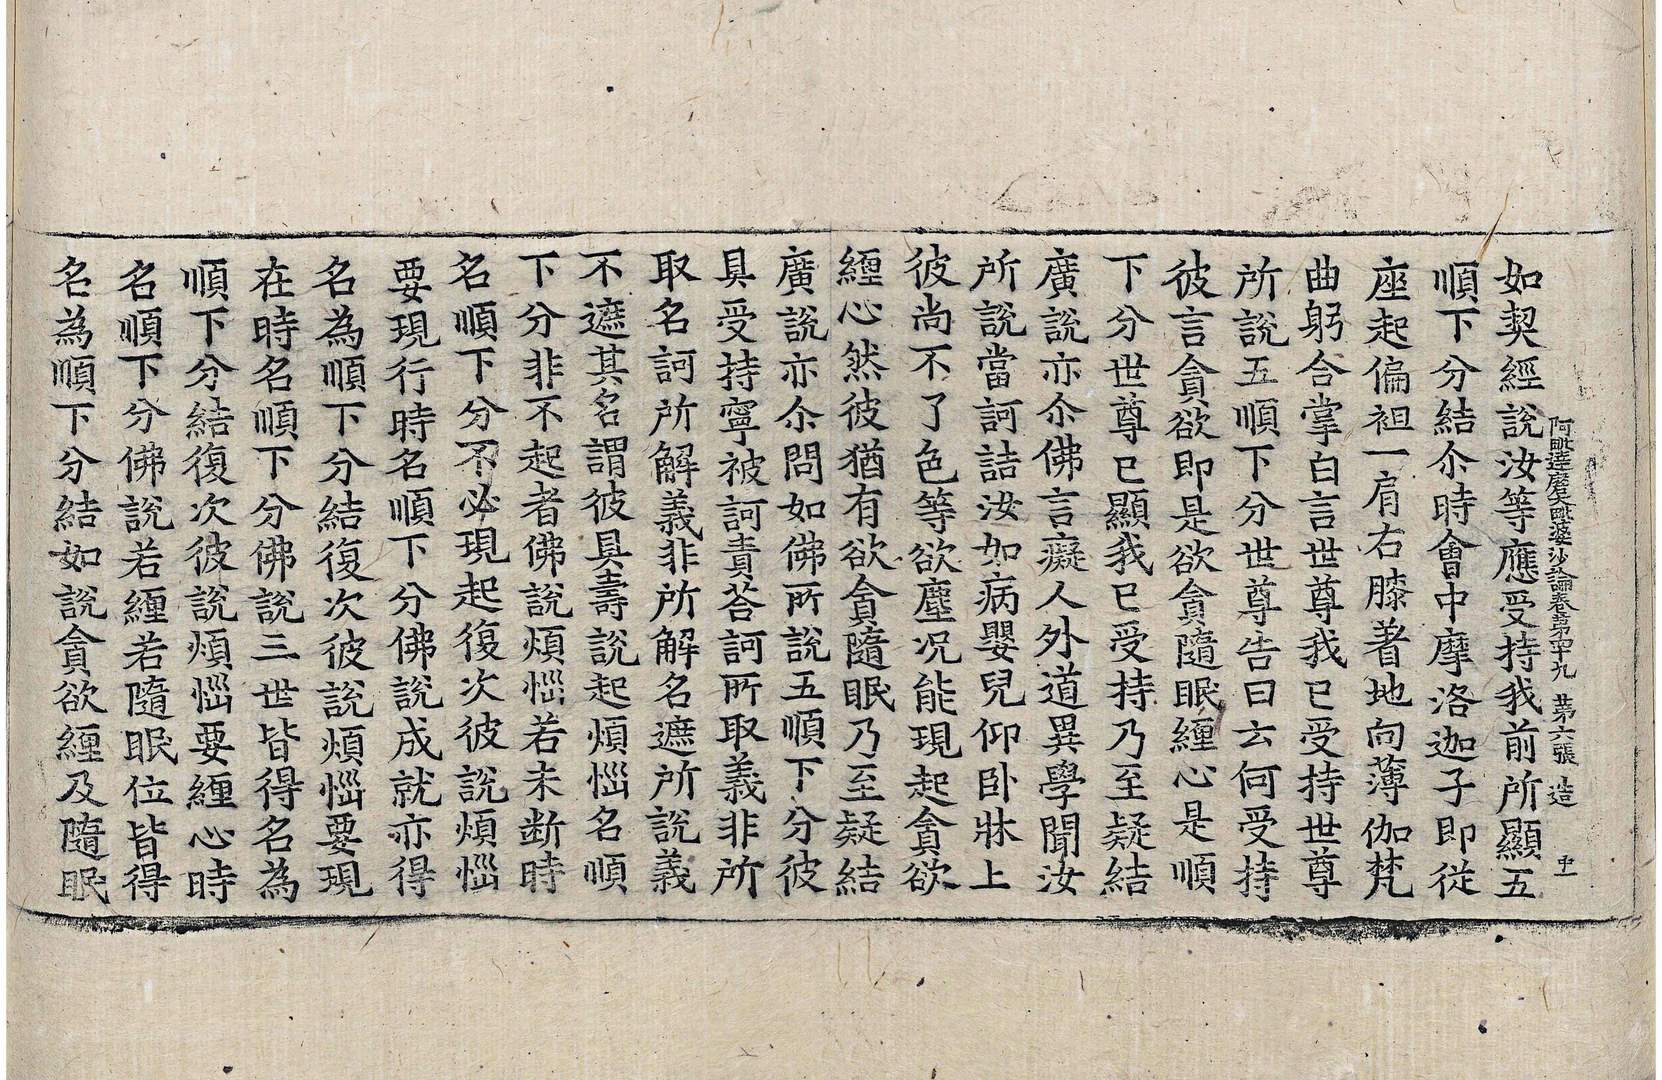 阿毗達磨大毗婆沙論卷第四十九 第六張 造
如契經說汝等應受持我前所顯五
順下分結尒時會中摩洛迦子即從
座起偏袒一肩右膝著地向薄伽梵
曲躬合掌白言世尊我已受持世尊
所說五順下分世尊告曰云何受持
彼言貪欲即是欲貪隨眠纏心是順
下分世尊已顯我已受持乃至疑結
廣說亦尒佛言癡人外道異學聞汝
所說當訶詰汝如病嬰兒仰卧牀上
彼尚不了色等欲塵況能現起貪欲
纏心然彼猶有欲貪隨眠乃至疑結
廣說亦尒問如佛所說五順下分彼
具受持寧被訶責荅訶所取義非所
取名訶所解義非所解名遮所說義
不遮其名謂彼具壽說起煩惱名順
下分非不起者佛說煩惱若未断時
名順下分不必現起復次彼說煩惱
要現行時名順下分佛說成就亦得
名為順下分結復次彼說煩惱要現
在時名順下分佛說三世皆得名為
順下分結復次彼說煩惱要纏心時
名順下分佛說若纏若隨眠位皆得
名為順下分結如說貪欲纏及隨眠